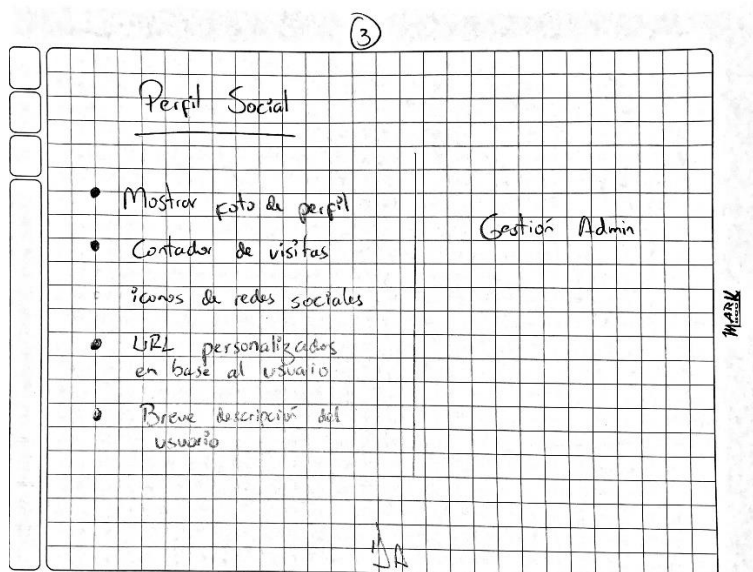 3
Perfil Social
Mostrar foto de perfil
Contador de visitas
iconos de redes sociales
URL personalizados
en base al usuario
Breve descripción del
usuario
Gestión Admin
MARK